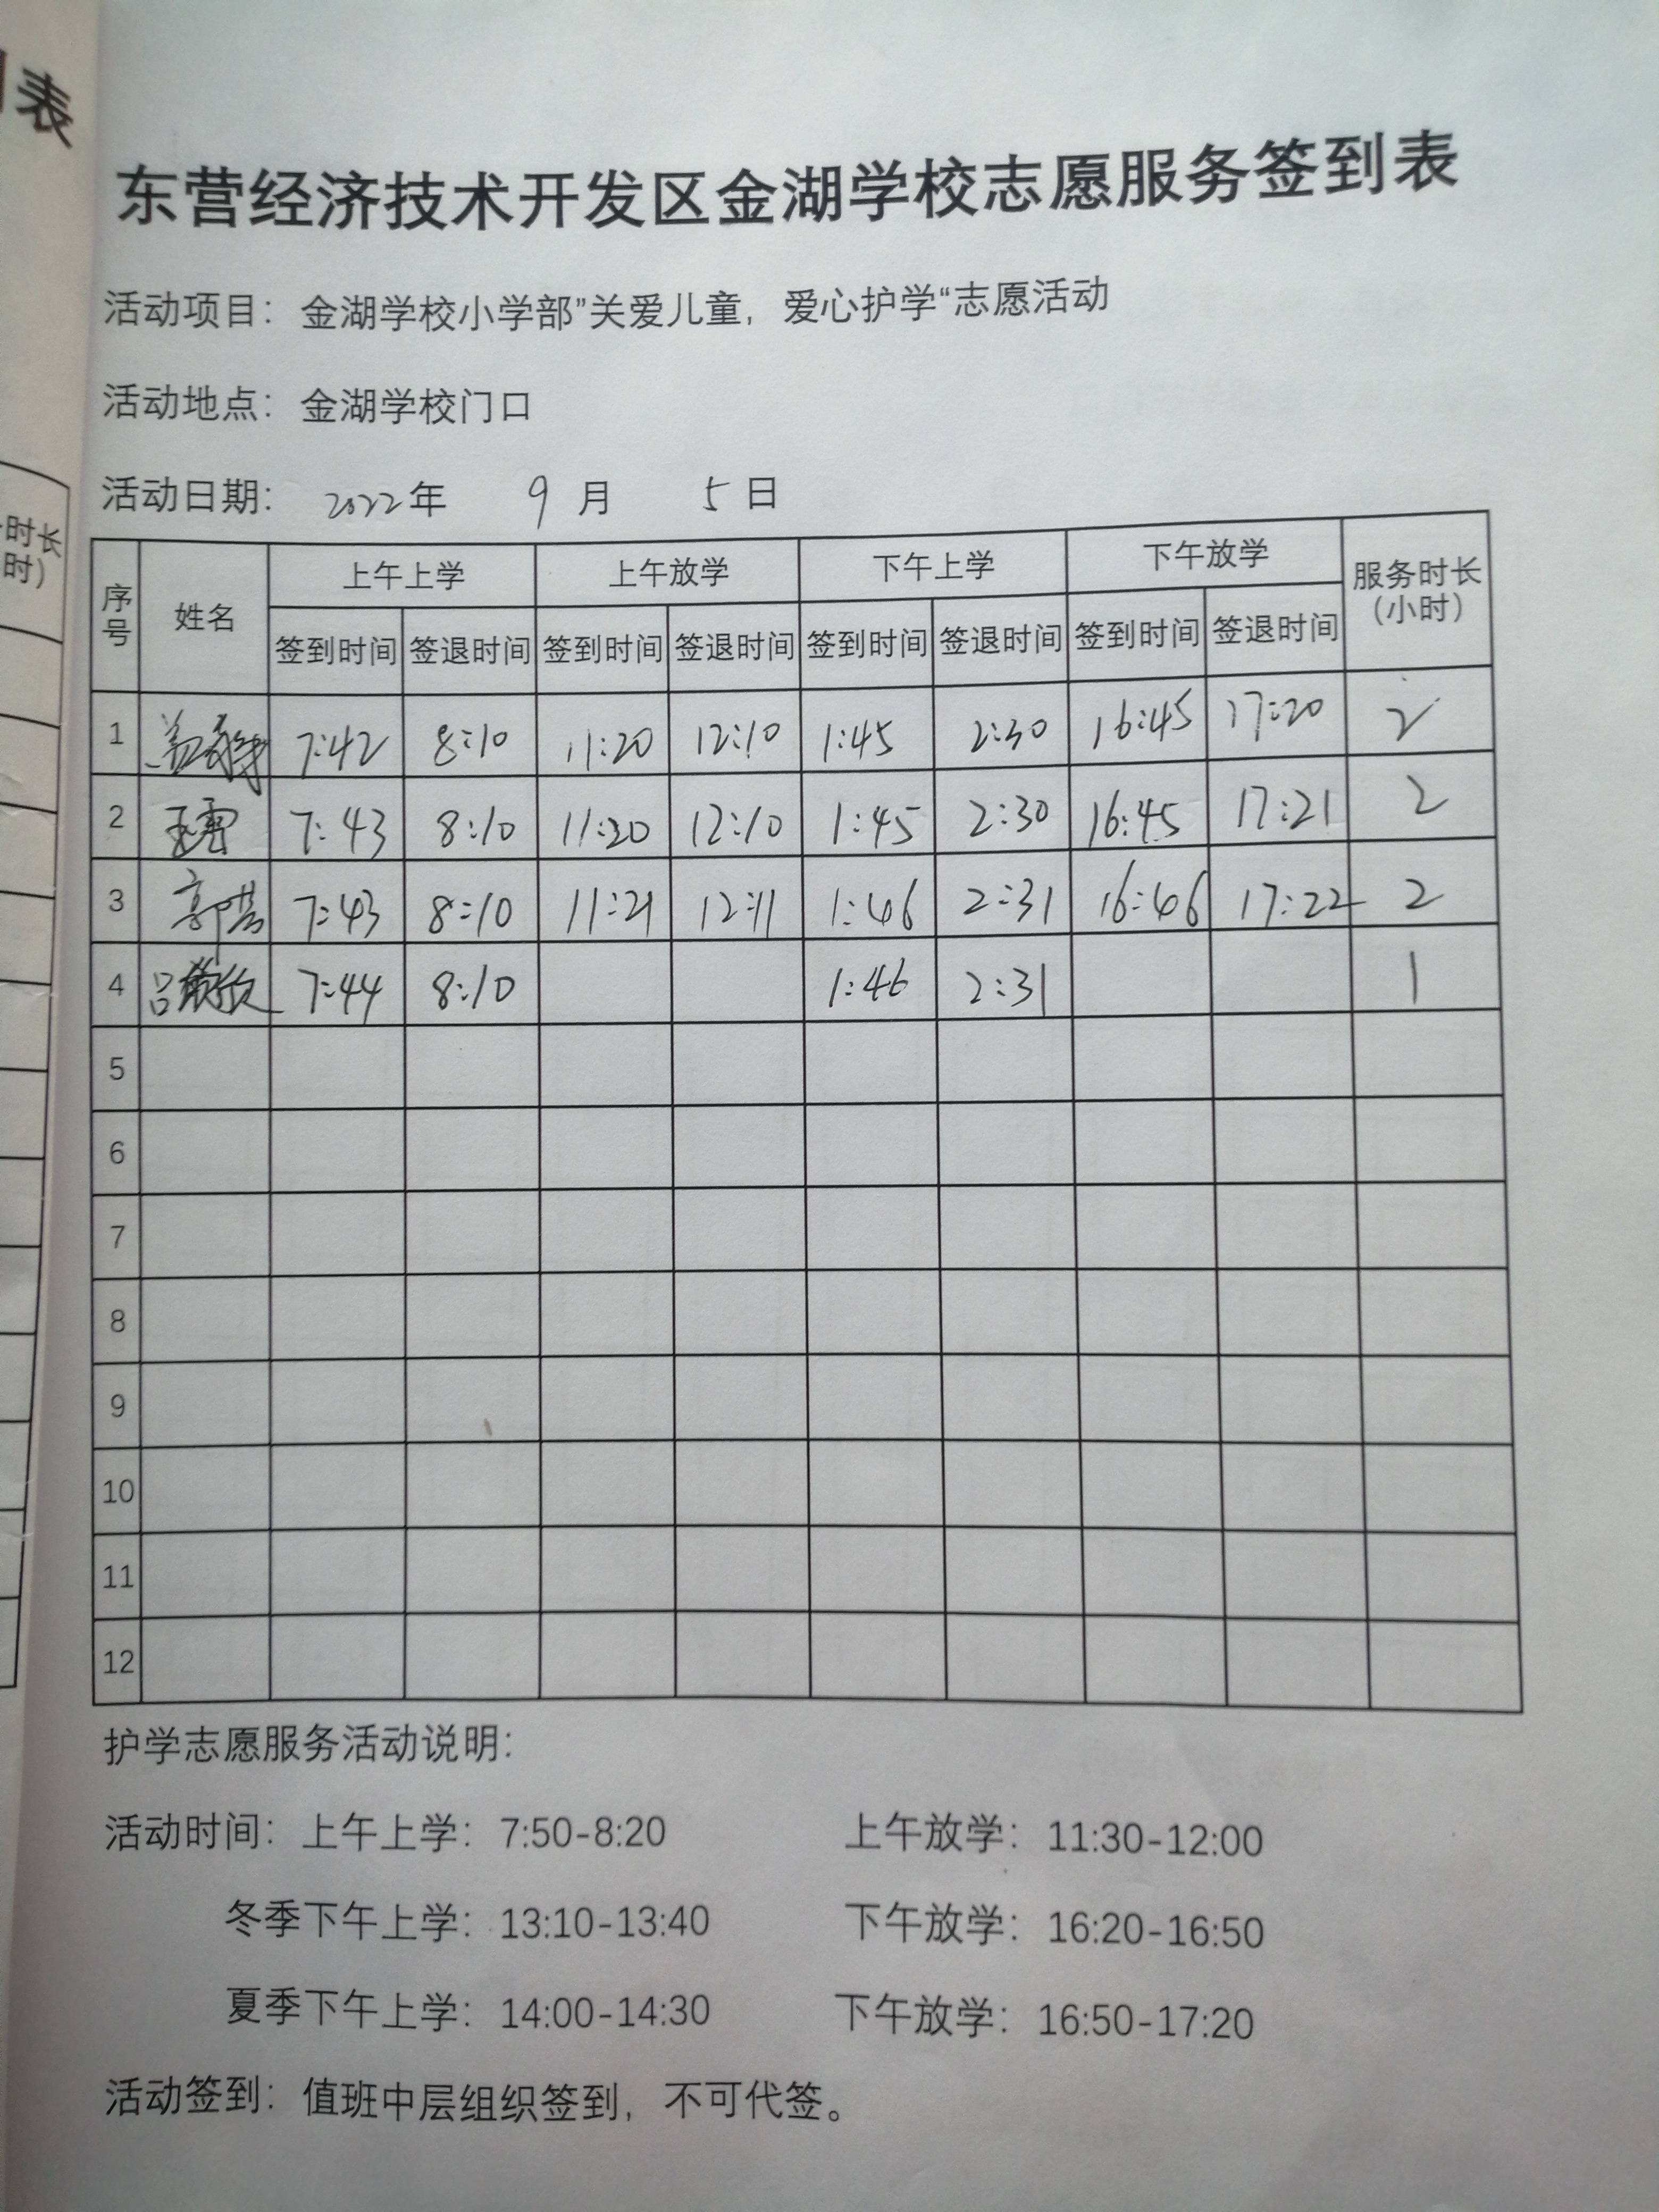 表
时长
时）
东营经济技术开发区金湖学校志愿服务签到表
活动项目：金湖学校小学部”关爱儿童，爱心护学“志愿活动
活动地点：金湖学校门口
活动日期： 2022年 9 月 5 日
序号 姓名 上午上学 上午放学 下午上学 下午放学 服务时长（小时）
签到时间 签退时间 签到时间 签退时间 签到时间 签退时间 签到时间 签退时间
1 7:42 8:10 11:20 12:10 1:45 2:30 16:45 17:20 2
2 7:43 8:10 11:20 12:10 1:45 2:30 16:45 17:21 2
3 7:43 8:10 11:21 12:11 1:46 2:31 16:46 17:22 2
4 7:44 8:10 1:46 2:31 1
5
6
7
8
9
10
11
12
护学志愿服务活动说明：
活动时间：上午上学：7:50-8:20 上午放学：11:30-12:00
冬季下午上学：13:10-13:40 下午放学：16:20-16:50
夏季下午上学：14:00-14:30 下午放学：16:50-17:20
活动签到：值班中层组织签到，不可代签。